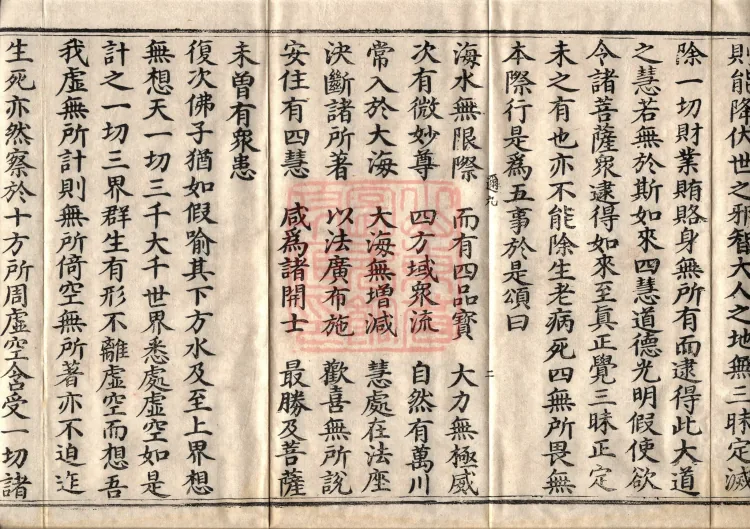 則能降伏世之邪智大人之地無三昧定滅
除一切財業賄賂身無所有而逮得此大道
之慧若無於斯如來四慧道德光明假使欲
令諸菩薩衆逮得如來至眞正覺三昧正定
未之有也亦不能除生老病死四無所畏無
本際行是爲五事於是頌曰
海水無限際 而有四品寶 大力無極威
次有微妙尊 四方域衆流 自然有萬川
常入於大海 大海無增減 慧處在法座
決斷諸所著 以法廣布施 歡喜無所說
安住有四慧 咸爲諸開士 最勝及菩薩
未曾有衆患
復次佛子猶如假喻其下方水及至上界想
無想天一切三千大千世界悉處虛空如是
計之一切三界群生有形不離虛空而想吾
我虛無所計則無所倚空無所著亦不迫迮
生死亦然察於十方所周虛空含受一切諸